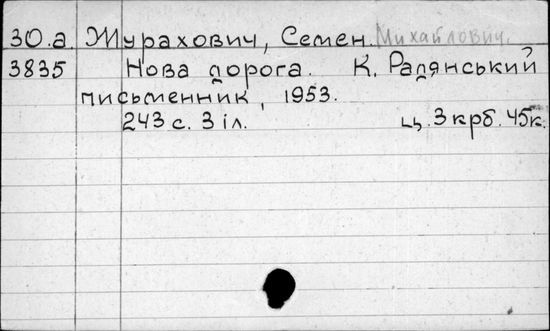 30.а. Журахович, Семен. Михайлович.
3835 Нова дорога. К. Радянський
письменник, 1953.
243 с. 3 іл. ц. 3 крб. 45к.